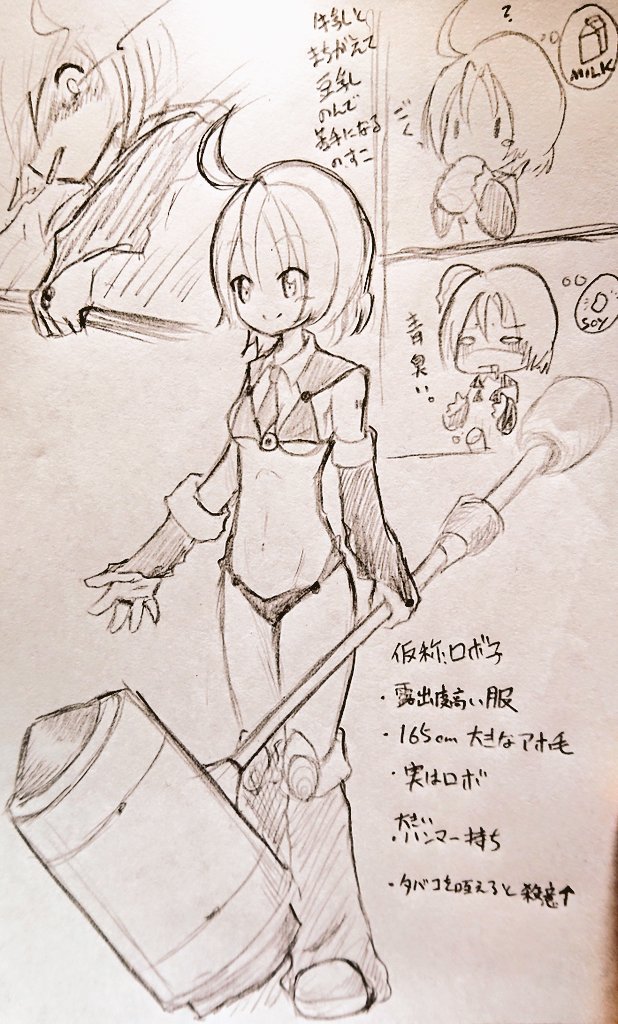 牛乳と
まちがえて
豆乳
のんで
苦手になる
の す こ
?
MILK
ごく
SOY
青臭い。
仮称:ロボ子
・露出度高い服
・165cm 大きなアホ毛
・実はロボ
・大きいハンマー持ち
・タバコを咥えると殺意↑